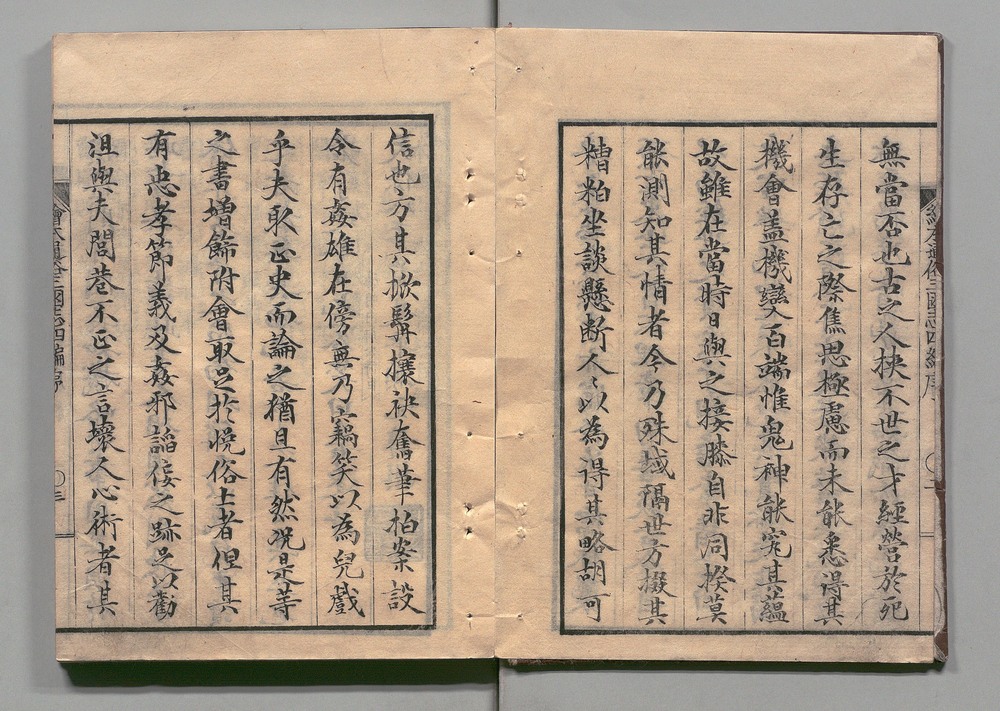 無當否也古之人挾不世之才經營於死
生存亡之際焦思極慮而未能悉得其
機會蓋機變百端惟鬼神能究其蘊
故雖在當時日與之接膝自非同揆莫
能測知其情者今乃殊域隔世方掇其
糟粕坐談懸断人〻以為得其略胡可
信也方其掀髯攘袂奮筆拍案設
令有姦雄在傍無乃竊笑以為兒戲
乎夫取正史而論之猶且有然况是等
之書增飾附會取足於悅俗士者但其
有忠孝節義及姦邪諂佞之跡足以勸
沮與夫閭巷不正之言壞人心術者其
繪本通俗三國志四編序
〇三